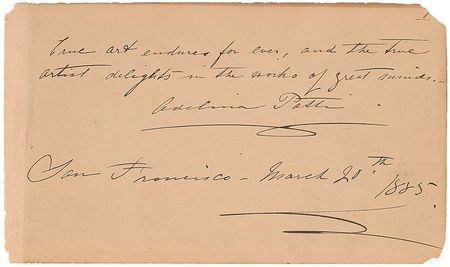 True art endures for ever, and the true
artist delights in the works of great minds.—
Adelina Patti.
San Francisco – March 20.th
1885.